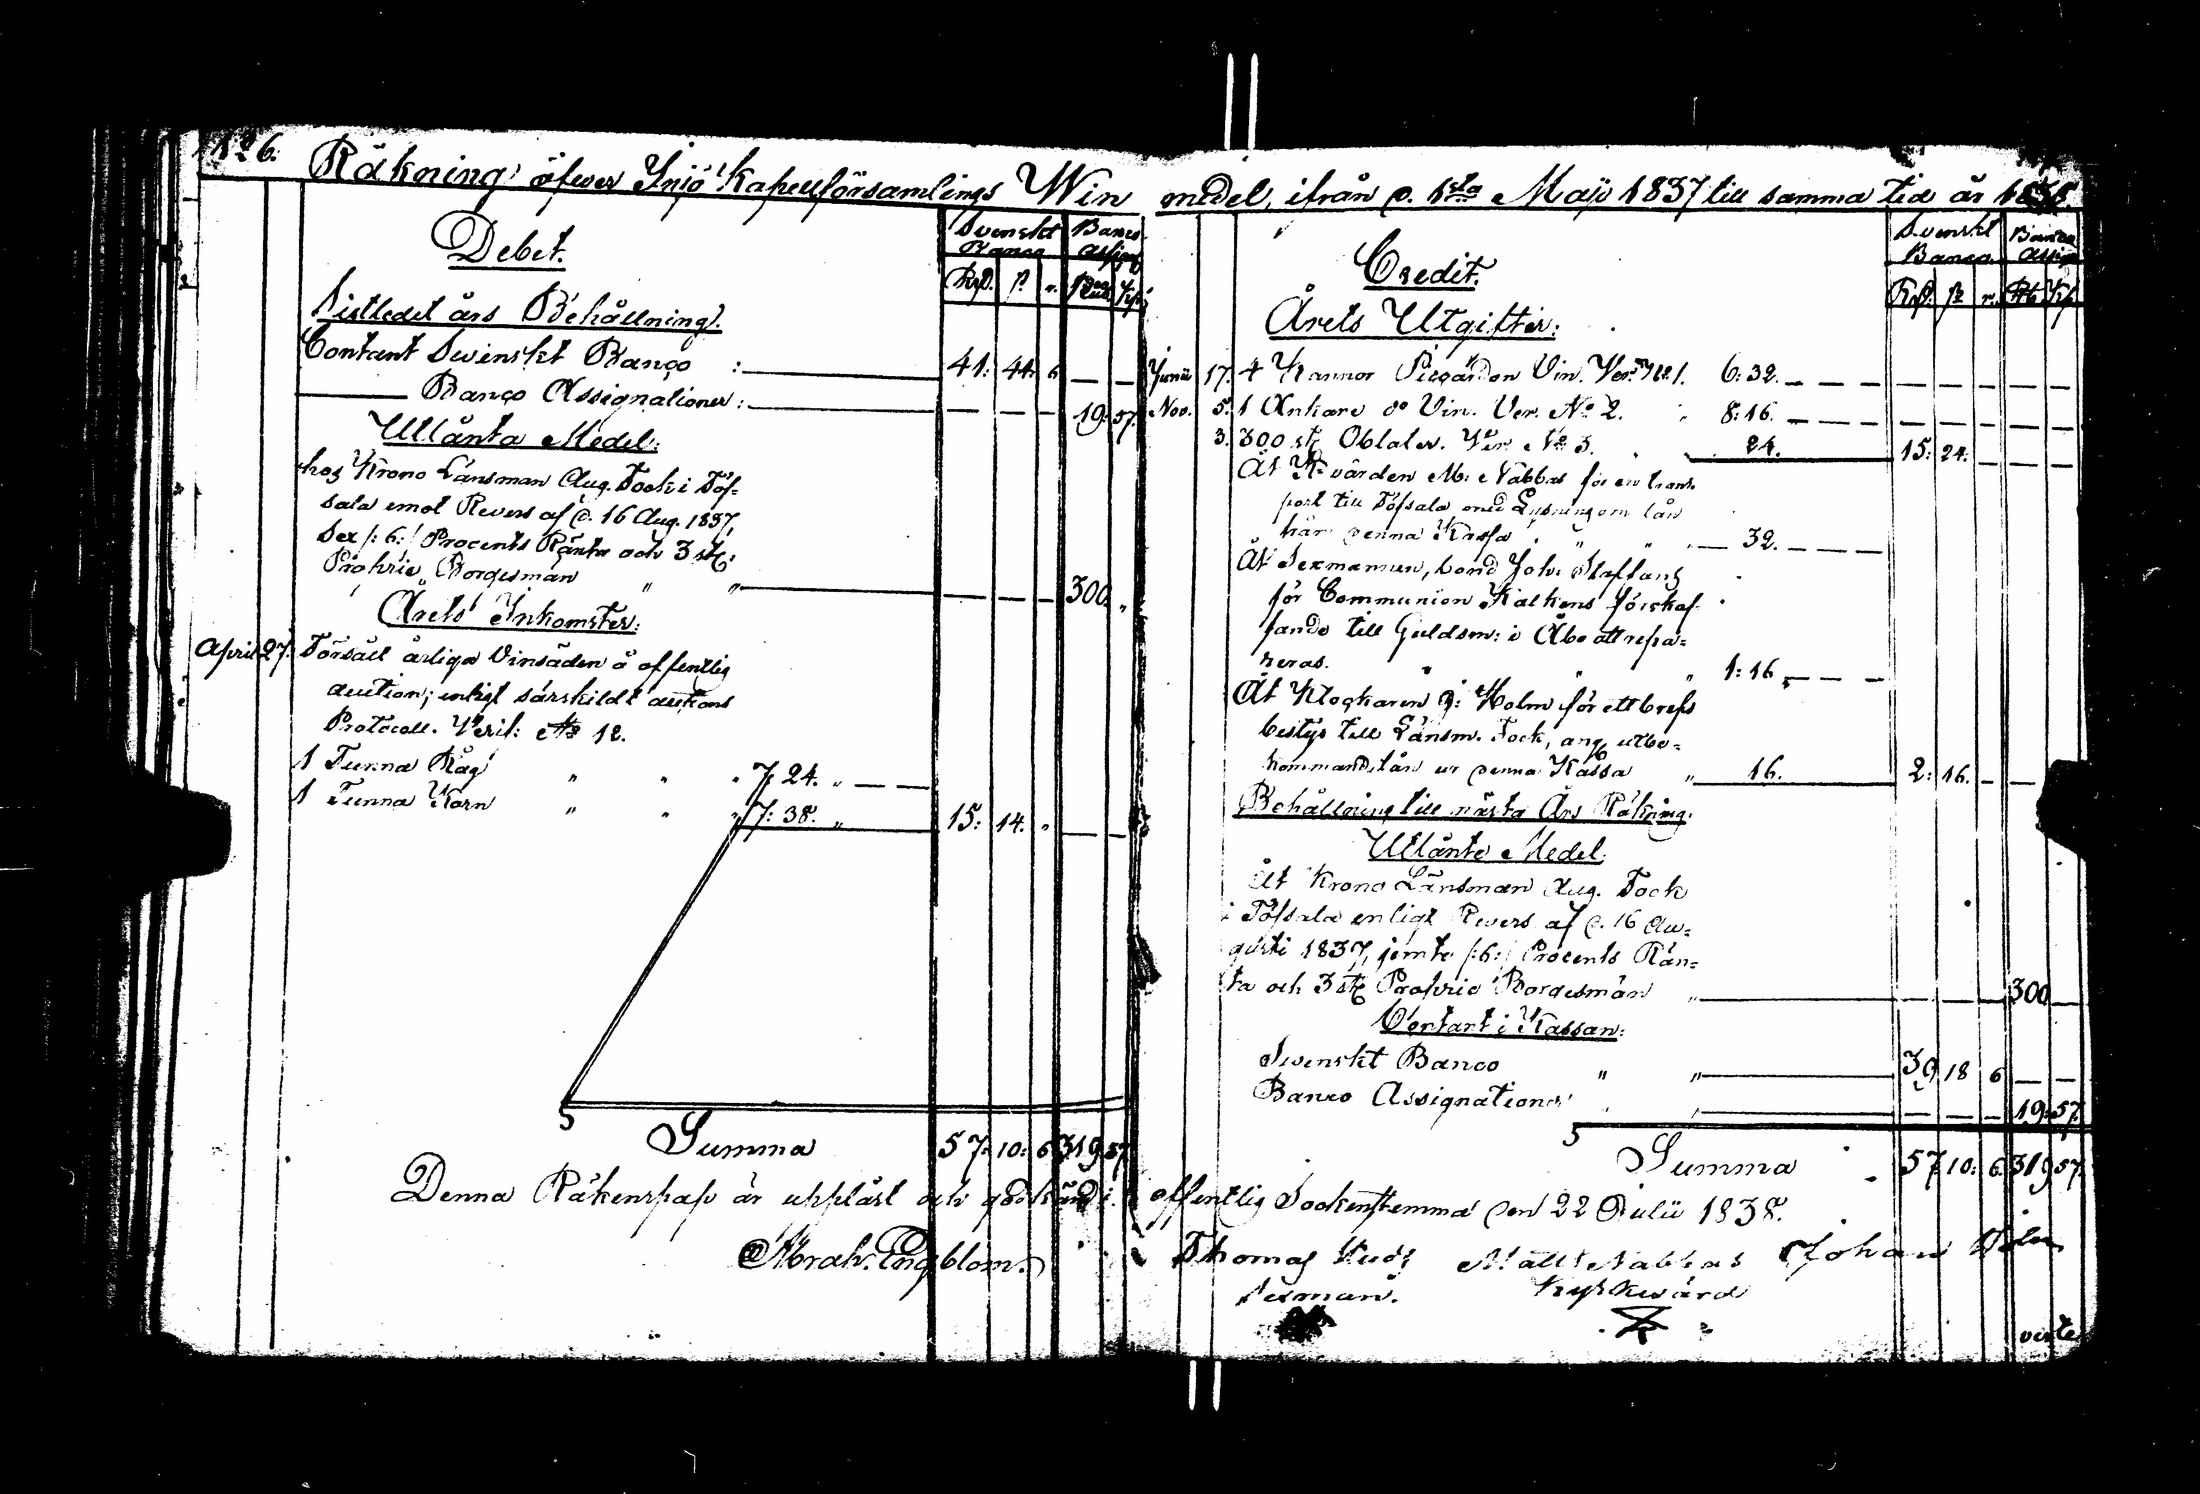 No 6. Räkning öfwer Iniö Kapellförsamlings Win medel, ifrån d. 1sta Maji 1837 till samma tid år 1838.
Debet.
Svenskt Banco
Banco Assign
Rgd. ß. r. Rub. Kp.
Sistledet års Behållning.
Contant Swenskt Banco : 41: 44: 6 — —
Banco Assignationer : — — — 19: 57.
Utlånta Medel:
hos Krono Länsman Aug. Tock i Töf-
sala emot Revers af d. 16 Aug. 1837,
Sex /: 6: / Procents Ränta och 3 st:
Proprie Borgesmän " " — — — 300. "
Årets Inkomster:
April 27. Försålt årliga Vinsäden å offentlig
auction; enligt särskildt auctions
Protocoll. Verif: No 12.
1 Tunna Råg " " " 7: 24. " — —
1 Tunna Korn " " " 7: 38. " 15: 14. " — —
Summa 57: 10: 6 319 57.
Credit.
Svenskt Banco.
Banco Assign
Rgd. ß r. Rb Kp
Årets Utgifter:
Junii 17. 4 Kannor Vin. Ver: No 1. 6: 32. — — — — — —
Nov. 5. 1 Ankare do Vin. Ver. No 2. " 8: 16. — — — — — —
3. 300 st. Oblater. Ver. No 3. 24. 15: 24. — — —
Åt K: värden M: Nabbas för en trans-
port till Töfsala med Lysning om lån
här denna Kassa " " " — 32. — — —
Åt Sexmannen, bond Joh: Staffans
för Communion Kalkens förskaf-
fande till Guldsm: i Åbo att repa-
reras. " " " 1: 16 — — —
Åt Klockaren J: Holm för ett brefs
bestyr till Länsm. Tock, ang. utbe-
kommand lån ur denna Kassa " 16. 2: 16. — —
Behållning till nästa Års Räkning.
Utlånte Medel.
Åt Krono Länsman Aug. Tock
i Töfsala enligt Revers af d. 16 Au-
gusti 1837, jemte /:6: / Procents Rän-
ta och 3 st Proprie Borgesmän " — — — 300 —
Contant i Kassan:
Swenskt Banco " " 39 18 6 — —
Banco Assignationer " " — — — 19: 57.
Summa 57 10: 6 319 57.
Denna Räkenskap är uppläst och godkänd i offentlig Sockenstemma den 22 Julii 1838.
Abrah. Engblom.
Thomas Matts Nabbas Johan
Sexman. kyrkvärd